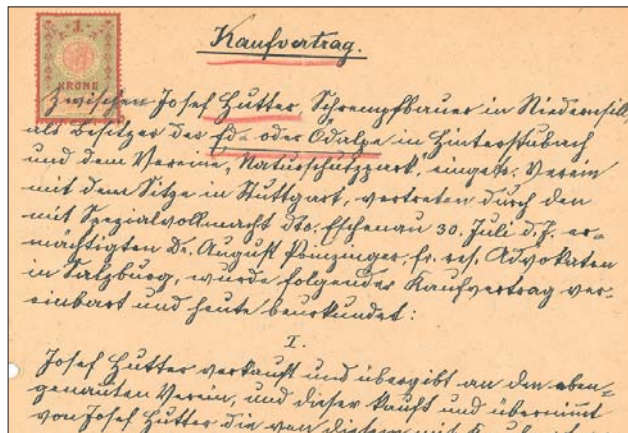 Kaufvertrag.
1
KRONE
Zwischen Josef Hutter, Schrempfbauer in Niedernsill,
als Besitzer der Ed- oder Ödalpe in Hinterstubach
und dem Vereine „Naturschutzpark“, eingetr. Verein
mit dem Sitze in Stuttgart, vertreten durch den
mit Spezialvollmacht dto. Eschenau 30. Juli d. J. er=
mächtigten Dr. August Prinzinger, fr. res. Advokaten
in Salzburg, wurde folgender Kaufvertrag ver=
einbart und heute beurkundet:
I.
Josef Hutter verkauft und übergibt an den oben=
genannten Verein, und dieser kauft und übernimmt
von Josef Hutter die von diesem mit